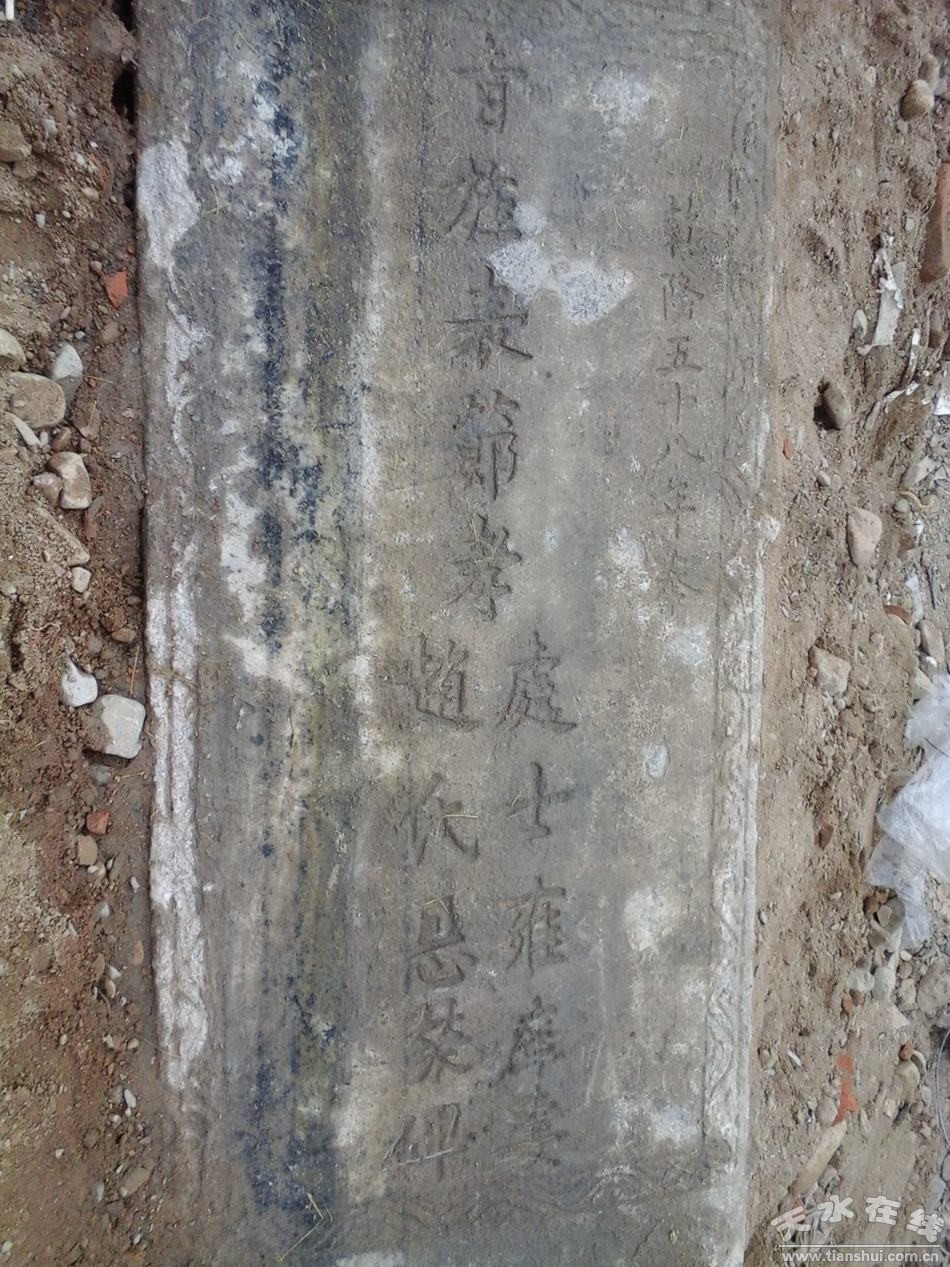 乾隆五十八年冬
旨旌表節孝
處士雍
趙氏
天水在线
www.tianshui.com.cn